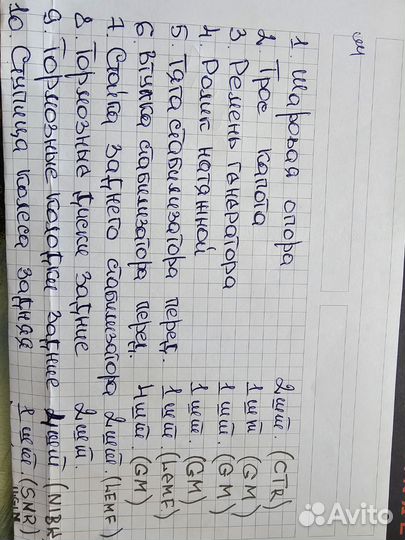 1. Шаровая опора 2 шт. (CTR)
2 Трос капота 1 шт (GM)
3. Ремень генератора 1 шт. (GM)
4. Ролик натяжной 1 шт. (GM)
5. Тяга стабилизатора перед. 1 шт (LEMF)
6. Втулка стабилизатора перед. 4 шт. (GM)
7. Стойка заднего стабилизатора 2 шт. (LEMF)
8 Тормозные диски задние 2 шт.
9. Тормозные колодки задние 4 шт (NIBK
10. Ступица колеса задняя 1 шт (SNR)
Avito